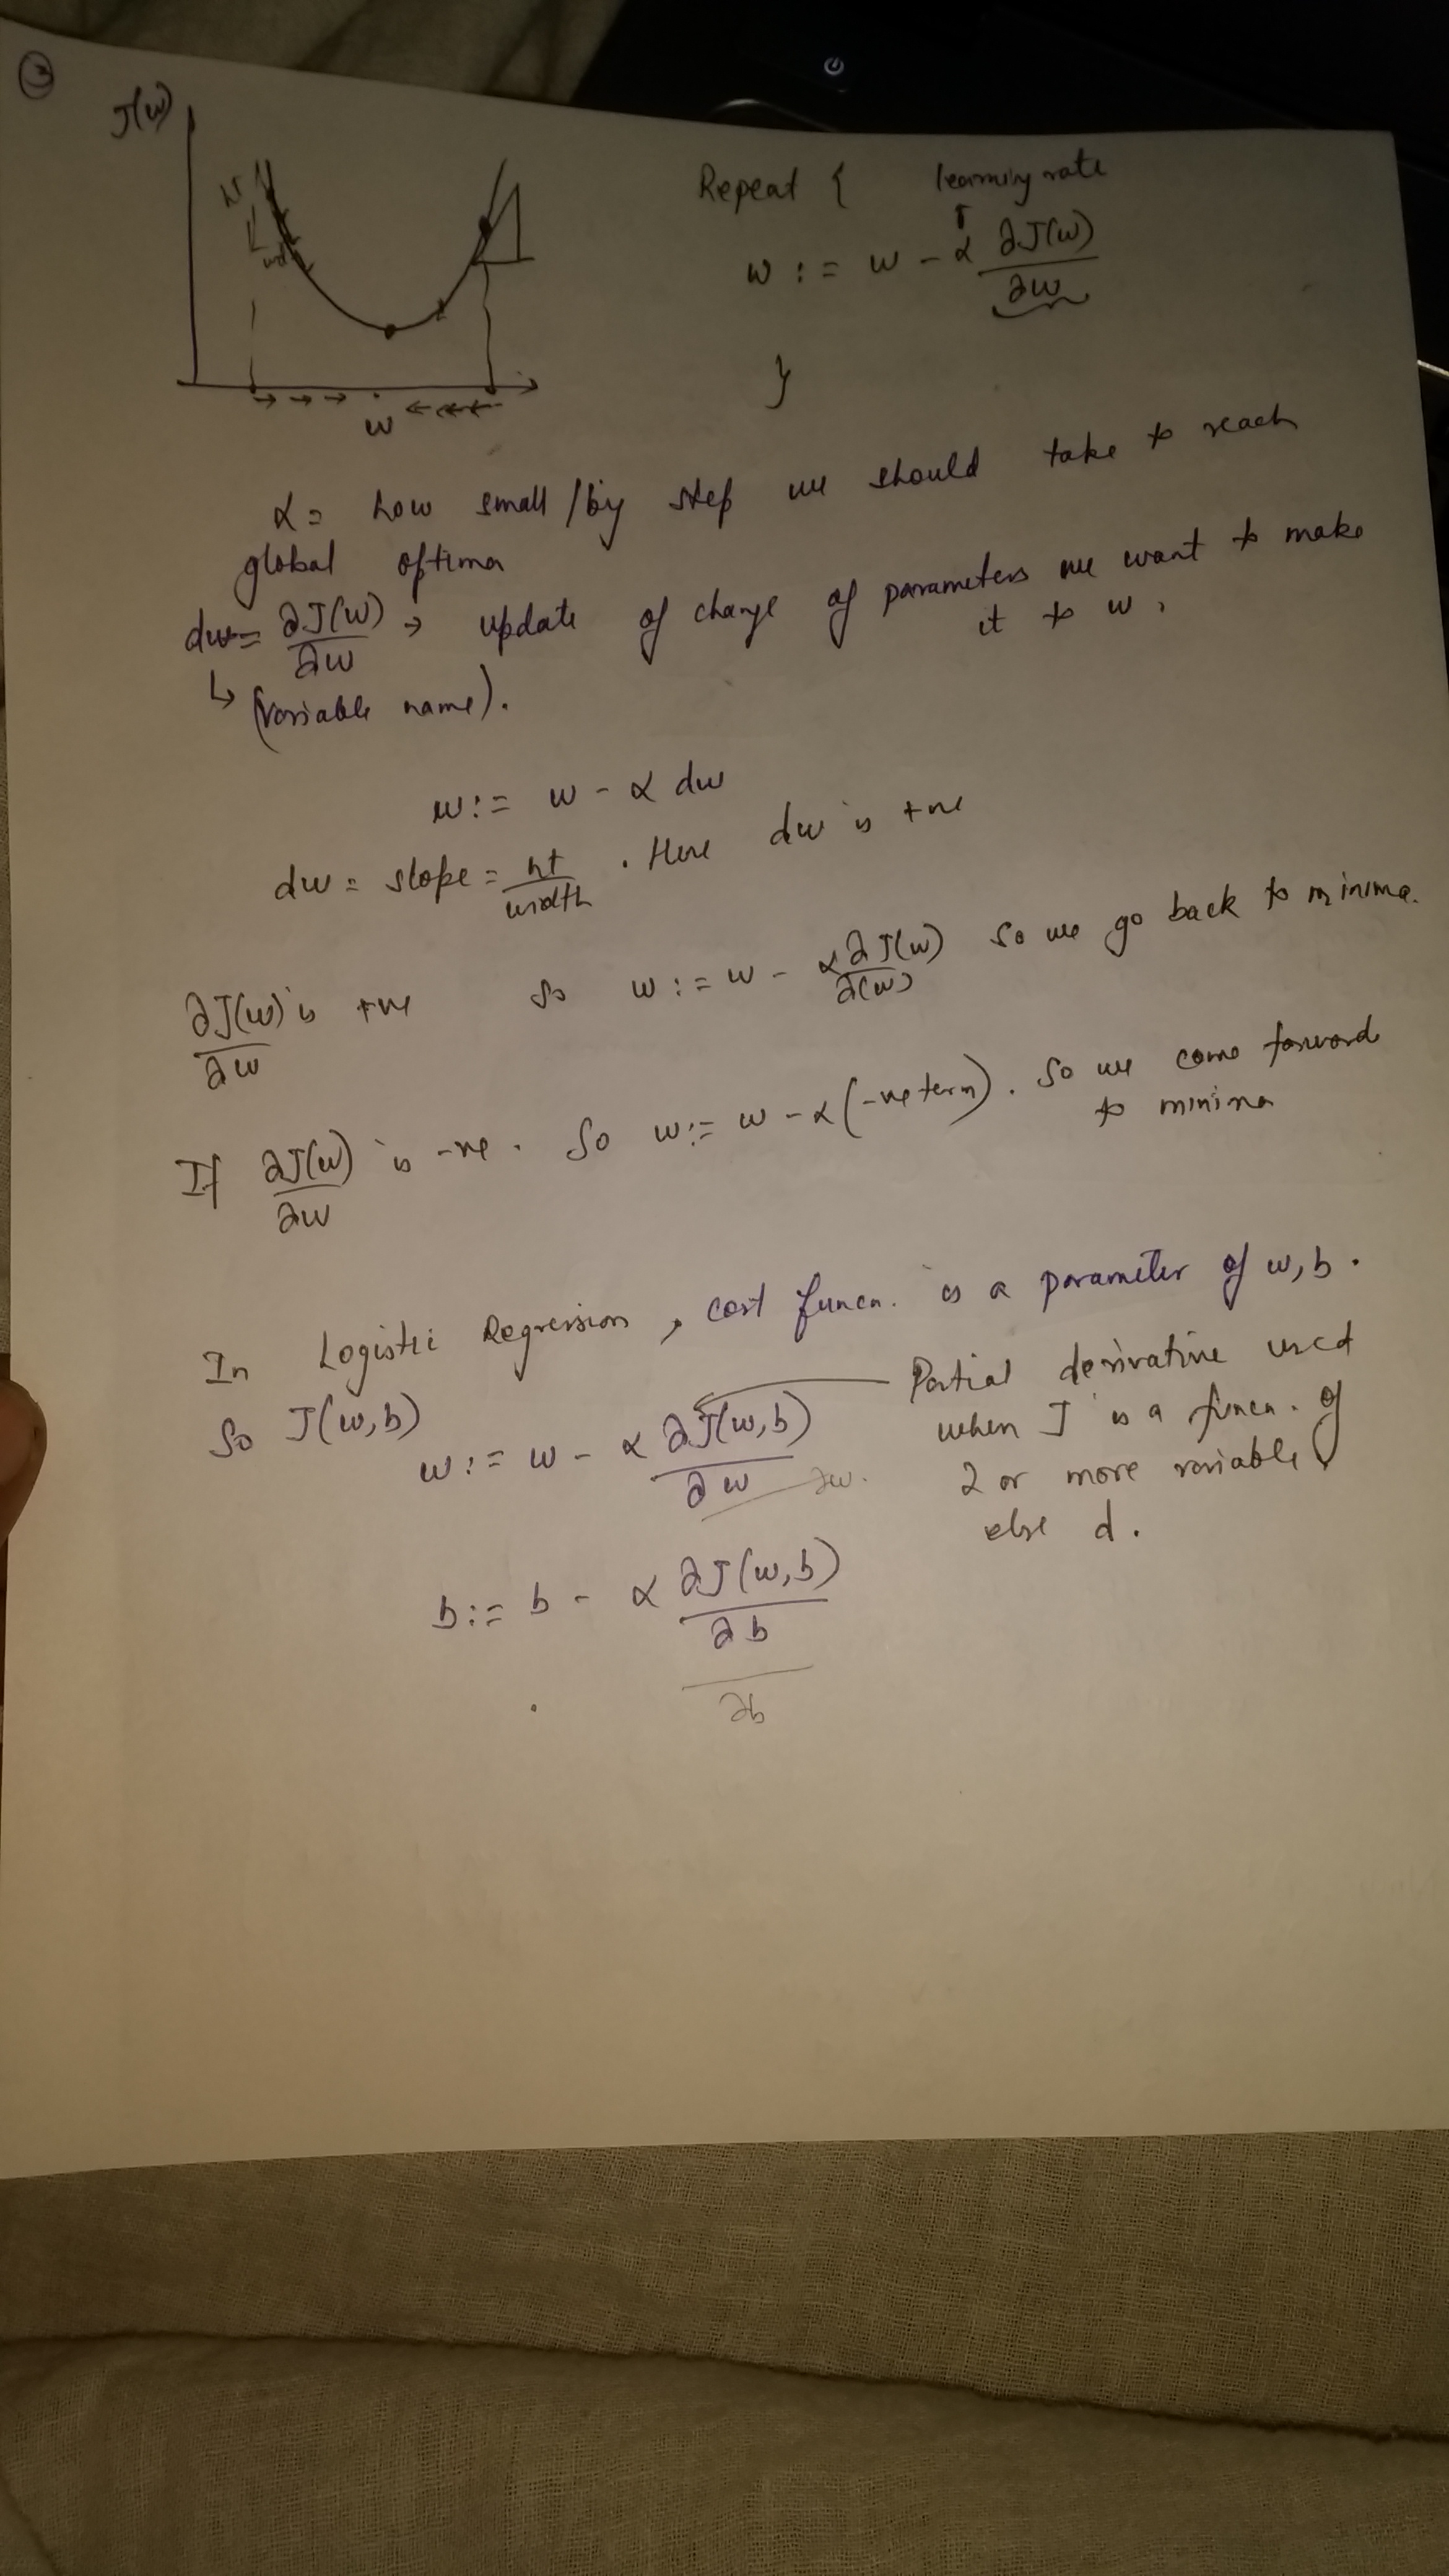 ③
J(w)
w
Repeat { learning rate
w := w - α ∂J(w)/∂w
}
α = how small/big step we should take to reach
global optima
dw = ∂J(w)/∂w → update of change of parameters we want to make
it to w.
↳ (variable name).
w := w - α dw
dw = slope = ht/width . Here dw is +ve
∂J(w)/∂w is +ve so w := w - α∂J(w)/∂(w) so we go back to minima.
If ∂J(w)/∂w is -ve. So w := w - α(-ve term). So we come forward
to minima
In Logistic Regression, cost funcn. is a parameter of w,b.
So J(w,b)
w := w - α ∂J(w,b)/∂w ∂w.
Partial derivative used
when J is a funcn. of
2 or more variable
else d.
b := b - α ∂J(w,b)/∂b
∂b